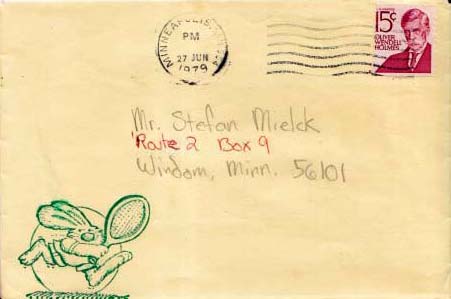 MINNEAPOLIS, MN
PM
27 JUN
1979
15¢
OLIVER
WENDELL
HOLMES
Mr. Stefan Mielck
Route 2 Box 9
Windom, Minn. 56101